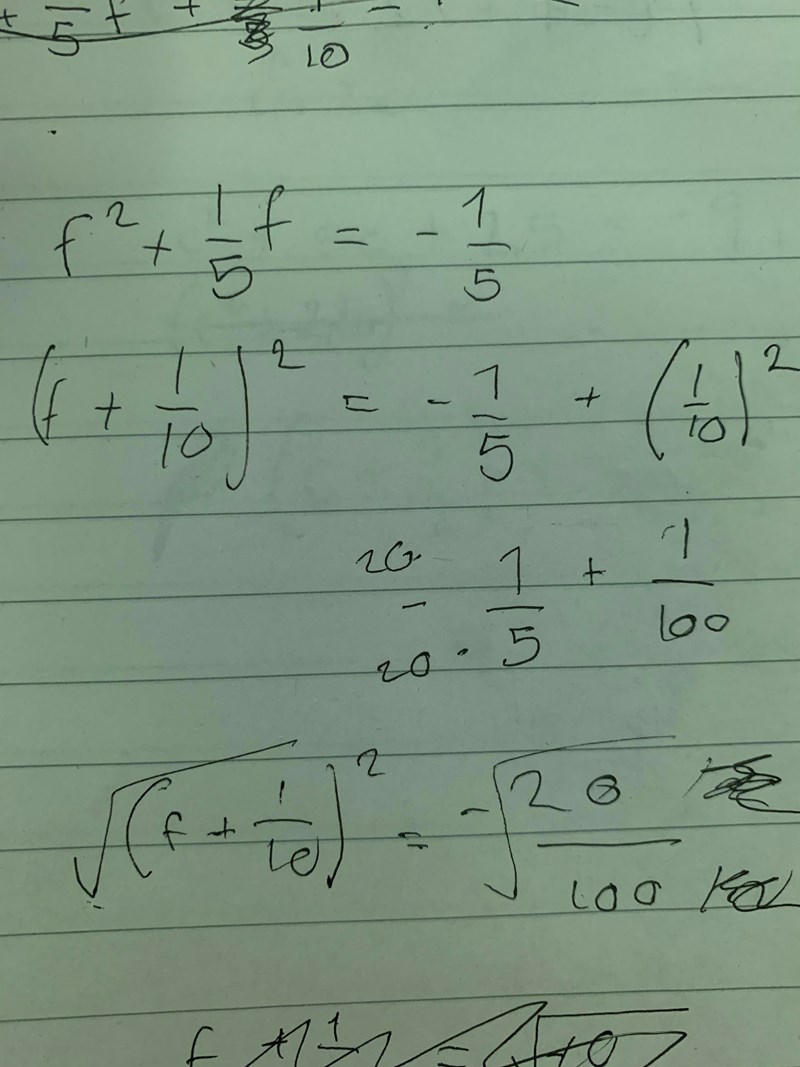 + —/5 f + 1/10 =
f² + 1/5 f = - 1/5
(f + 1/10)² = - 1/5 + (1/10)²
20
- 1/5 + 1/100
20 ·
√(f + 1/10)² = -√20/100
f + 1/ = √